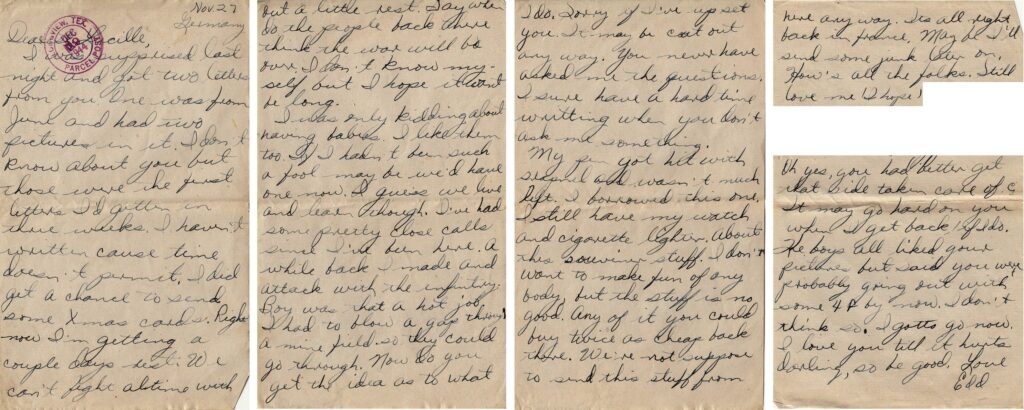 Nov. 27
Germany
LONGVIEW, TEX.
DEC
1944
PARCEL
Dear Lucille,
I was supprised last
night and got two letters
from you. One was from
June and had two
pictures in it. I don't
know about you but
those were the first
letters I'd gitten in
three weeks. I haven't
written cause time
doesn't permit. I did
get a chance to send
some Xmas cards. Right
now I'm gitting a
couple days rest. We
can't fight altime with
out a little rest. Say when
do the people back there
think the war will be
over. I don't know my-
self but I hope it won't
be long.
I was only kidding about
having babies. I like them
too. If I hadn't been such
a fool may be we'd have
one now. I guess we live
and learn though. I've had
some pretty close calls
since I've been here. A
while back I made and
attack with the infantry.
Boy was that a hot job,
I had to blow a gap through
a mine field so they could
go through. Now do you
get the idea as to what
I do. Sorry if I've up set
you. It may be cut out
any way. You never have
asked me the questions.
I sure have a hard time
writting when you don't
ask me something.
My pen got hit with
and wasn't much
left. I borrowed this one.
I still have my watch
and cigarette lighter. About
this souvenir stuff. I don't
want to make fun of any
body, but the stuff is no
good. Any of it you could
buy twice as cheap back
there. We're not suppose
to send this stuff from
here any way. Its all right
back in france. May be I'll
send some junk later on.
How's all the folks. Still
love me (I hope)
Oh yes, you had better get
that side taken care of
It may go hard on you
when I get back if I do.
The boys all liked your
pictures but said you were
probably going out with
some 4F by now. I don't
think so. I gotto go now.
I love you till it hurts
darling, so be good. Love
Edd